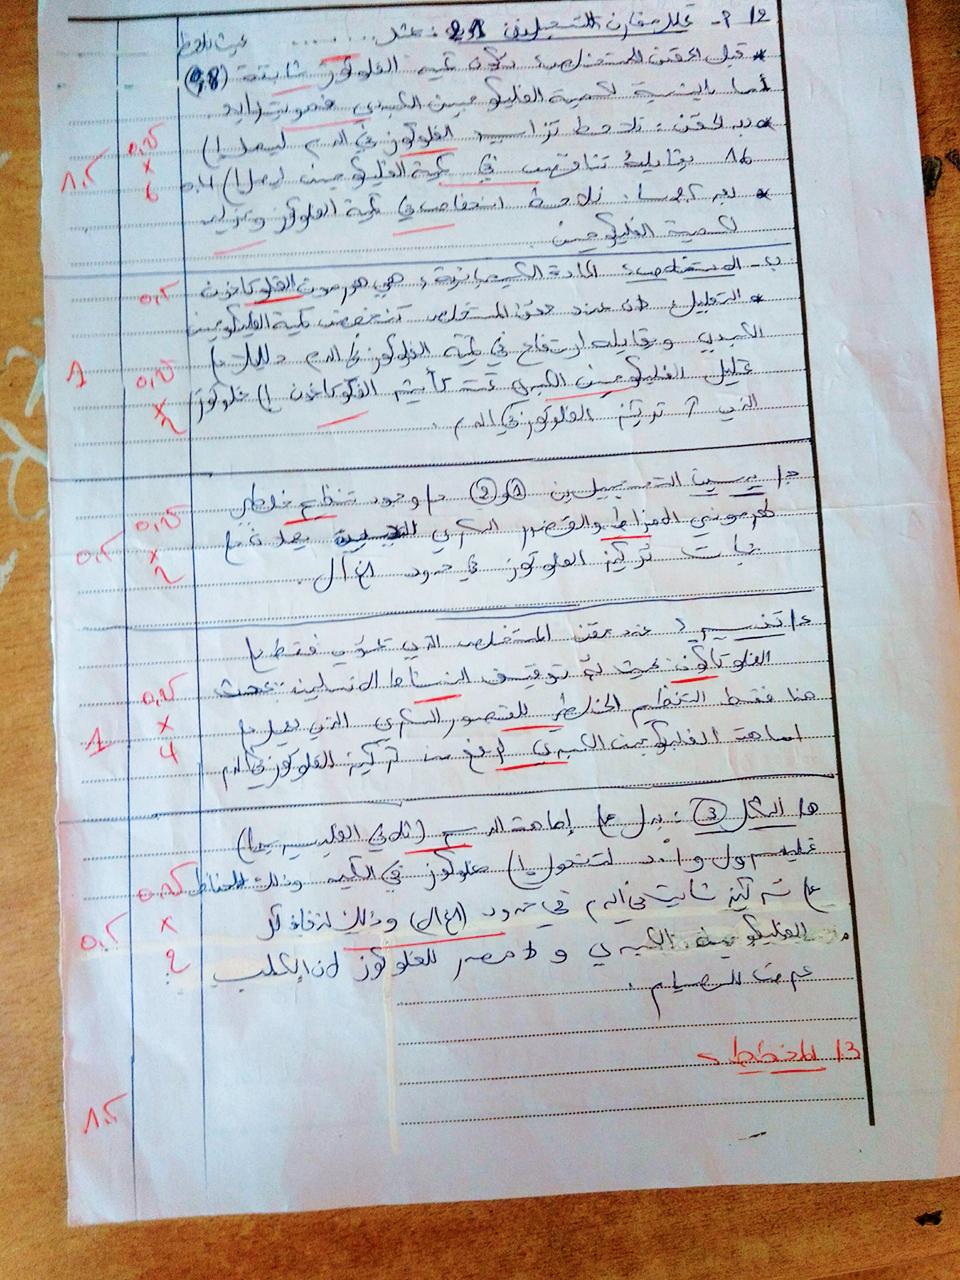 12 - أ - تحليل مقارن للتسجيلين 1 و 2: تمثل ........ حيث نلاحظ
* قبل الحقن المستخلص: تكون كمية الغلوكوز ثابتة (0,8)
أما بالنسبة لكمية الغليكوجين الكبدي فهو يتزايد
* بعد الحقن: نلاحظ تزايد الغلوكوز في الدم ليصل إلى
1.6 يقابله تناقص في كمية الغليكوجين ليصل إلى 0.4
* بعد نلاحظ انخفاض في كمية الغلوكوز وتزايد
لكمية الغليكوجين
0,25
×
6
1.5
ب - المستخلص: المادة الكيميائية: هي هرمون الغلوكاغون
* التعليل: لأن عند حقن المستخلص تنخفض كمية الغليكوجين
الكبدي ويقابله ارتفاع في كمية الغلوكوز في الدم دلالة على
تحليل الغليكوجين الكبدي تحت تأثير الغلوكاغون إلى غلوكوز
الذي تركيز الغلوكوز في الدم.
0,5
0,25
×
2
1
ج/ يبين التسجيلين 1 و 2 على وجود تنظيم خلطي
هرموني للإفراط والقصور السكري يعمل على
ثبات تركيز الغلوكوز في حدود 1غ/ل.
0,25
×
2
0,5
د/ تفسير: عند حقن المستخلص الذي يحتوي فقط على
الغلوكاغون بحيث تم توقيف النشاط الأنسولين بحيث
هنا فقط التنظيم الخلطي للقصور السكري الذي يعمل على
إماهة الغليكوجين الكبدي لرفع من تركيز الغلوكوز في الدم
0,25
×
4
1
هـ/ الشكل 3: يدل على إماهة الدسم (ثلاثي الغليسيريد) إلى
غليسرول و لتتحول إلى غلوكوز في الكبد وذلك للحفاظ
على تركيز ثابت في الدم في حدود (1غ/ل) وذلك لنفاذ
الغليكوجين الكبدي ولا مصدر للغلوكوز لأن الكلب
عرضة للصيام.
0,25
×
2
0,5
13 المخطط:
1.5